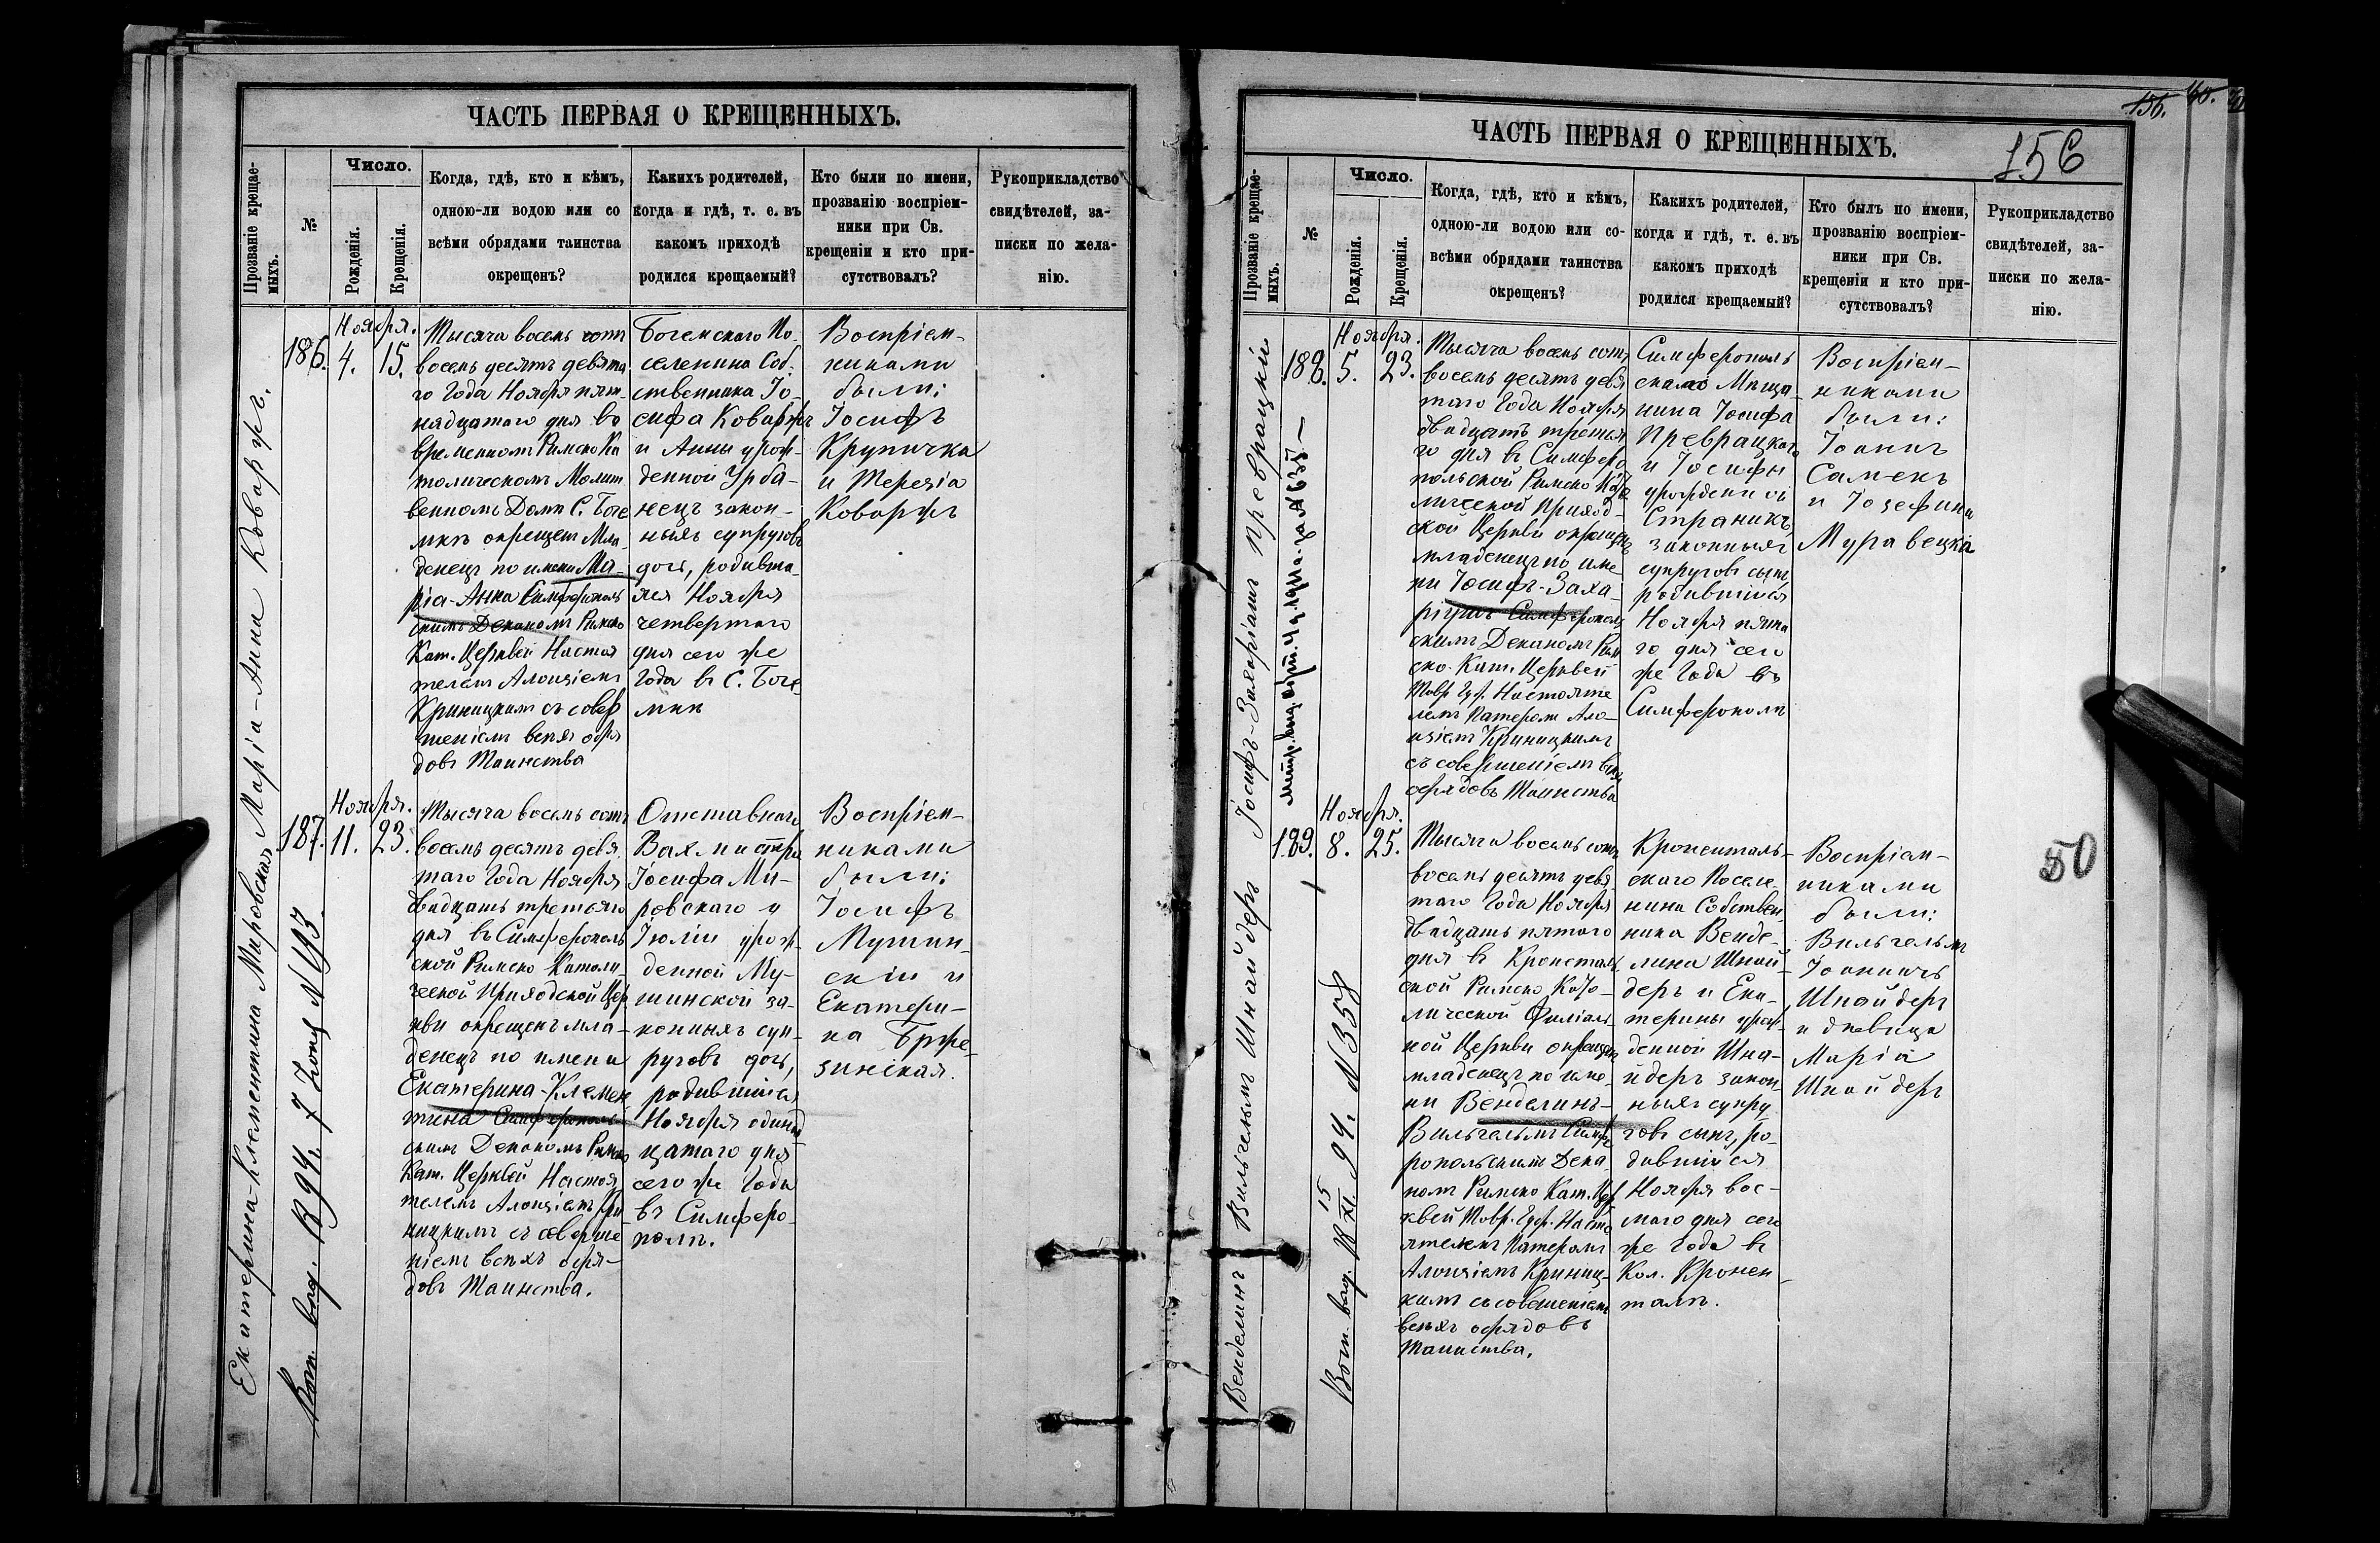 ЧАСТЬ ПЕРВАЯ О КРЕЩЕННЫХЪ.
Прозваніе крещае-
мыхъ.
№
Число.
Рожденія.
Крещенія.
Когда, гдѣ, кто и кѣмъ,
одною-ли водою или со
всѣми обрядами таинства
окрещенъ?
Какихъ родителей,
когда и гдѣ, т. е. въ
какомъ приходѣ
родился крещаемый?
Кто были по имени,
прозванію воспріем-
ники при Св.
крещеніи и кто при-
сутствовалъ?
Рукоприкладство
свидѣтелей, за-
писки по жела-
нію.
Марія-Анна Коваржъ.
186.
Ноября.
4. 15.
Тысяча восемь сотъ
восемь десятъ девята
го Года Ноября пят-
надцатаго дня во
временномъ Римско Ка
толическомъ Молит
венномъ Домѣ С. Боге
мкѣ окрещенъ Мла
денецъ по имени Ма-
рія-Анна Симферополь
скимъ Деканомъ Римско
Кат. Церквей Настоя
телемъ Алоизіемъ
Криницкимъ съ совер
шеніемъ всѣхъ обря
довъ Таинства
Богемскаго По-
селенина Соб-
ственника Іо-
сифа Коваржъ
и Анны урож-
денной Урба-
нецъ закон-
ныхъ супруговъ
дочь, родивша-
яся Ноября
четвертаго
дня сего же
Года въ С. Боге
мкѣ
Воспріем-
никами
были:
Іосифъ
Крупичка
и Терезія
Коваржъ
Екатерина-Клементина Мировская
Коп. выд. 18 94. 7 Іюня N 193
187.
Ноября.
11. 23.
Тысяча восемь сотъ
восемь десятъ девя
таго Года Ноября
двадцать третьяго
дня въ Симферополь
ской Римско Католи
ческой Приходской Цер
кви окрещенъ мла-
денецъ по имени
Екатерина-Клемен
тина Симферополь
скимъ Деканомъ Римско
Кат. Церквей Настоя
телемъ Алоизіемъ Кри
ницкимъ съ соверше
ніемъ всѣхъ обря-
довъ Таинства.
Отставнаго
Вахмистра
Іосифа Ми-
ровскаго и
Іюліи урож-
денной Му-
шинской за-
конныхъ суп-
руговъ дочь,
родившійся
Ноября одинад
цатаго дня
сего же Года
въ Симферо-
полѣ.
Воспріем-
никами
были:
Іосифъ
Мушин-
скій и
Екатери-
на Брже-
зинская.
156. 40.
ЧАСТЬ ПЕРВАЯ О КРЕЩЕННЫХЪ.
156
Прозваніе крещае-
мыхъ.
№
Число.
Рожденія.
Крещенія.
Когда, гдѣ, кто и кѣмъ,
одною-ли водою или со-
всѣми обрядами таинства
окрещенъ?
Какихъ родителей,
когда и гдѣ, т. е. въ
какомъ приходѣ
родился крещаемый?
Кто былъ по имени,
прозванію воспріем-
ники при Св.
крещеніи и кто при-
сутствовалъ?
Рукоприкладство
свидѣтелей, за-
писки по жела-
нію.
Іосифъ-Захаріашъ Превращкій
188.
Ноября.
5. 23.
Тысяча восемь сотъ
восемь десятъ девя
таго Года Ноября
двадцать третья
го дня въ Симферо
польской Римско Като
лической Приход-
ской Церкви окрещенъ
младенецъ по име
ни Іосифъ-Заха-
ріушъ Симферополь
скимъ Деканомъ Рим
ско-Кат. Церквей
Тавр. Губ. Настояте
лемъ Патеромъ Ало-
изіемъ Криницкимъ
съ совершеніемъ всѣхъ
обрядовъ Таинства
Симферополь
скаго Мѣща-
нина Іосифа
Превращкаго
и Іосифы
урожденной
Страникъ
законныхъ
супруговъ сынъ
родившійся
Ноября пята
го дня сего
же Года въ
Симферополѣ
Воспріем-
никами
были:
Іоаннъ
Самекъ
и Іозефина
Муравецка
Венделинъ Вильгельмъ Шнайдеръ
Коп. выд. 18 15/XI 94. N 358
189.
Ноября.
8. 25.
Тысяча восемь сотъ
восемь десятъ девя
таго Года Ноября
двадцать пятаго
дня въ Кронсталь
ской Римско Като-
лической Филіаль-
ной Церкви окрещенъ
младенецъ по име-
ни Венделинъ-
Вильгельмъ Симфе
ропольскимъ Дека
номъ Римско Кат. Цер
квей Тавр. Губ. Насто
ятелемъ Патеромъ
Алоизіемъ Криниц-
кимъ съ совершеніемъ
всѣхъ обрядовъ
Таинства.
Кроненталь-
скаго Поселе-
нина Собствен
ника Венде-
лина Шнай-
деръ и Ека-
терины урож-
денной Шна-
йдеръ закон
ныхъ супру
говъ сынъ, ро-
дившійся
Ноября вос-
маго дня сего
же Года въ
Кол. Кронен-
талѣ.
Воспріем-
никами
были:
Вильгельмъ
Іоаннъ
Шнайдеръ
и дѣвица
Марія
Шнайдеръ
50